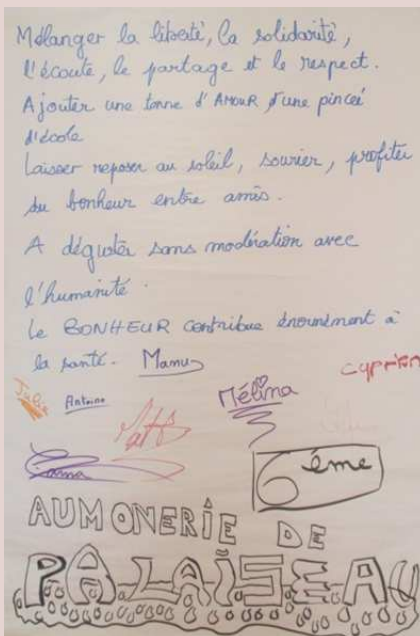 Mélanger la liberté, la solidarité,
l'écoute, le partage et le respect.
Ajouter une tonne d'AMOUR, d'une pinceé
d'école
Laisser reposer au soleil, sourier, profiter
du bonheur entre amis.
A déguster sans modération avec
l'humanité.
Le BONHEUR contribue énormément à
la santé. Manu
Cyprien
Julie Antoine Mélina
6ème
AUMONERIE DE
PALAISEAU